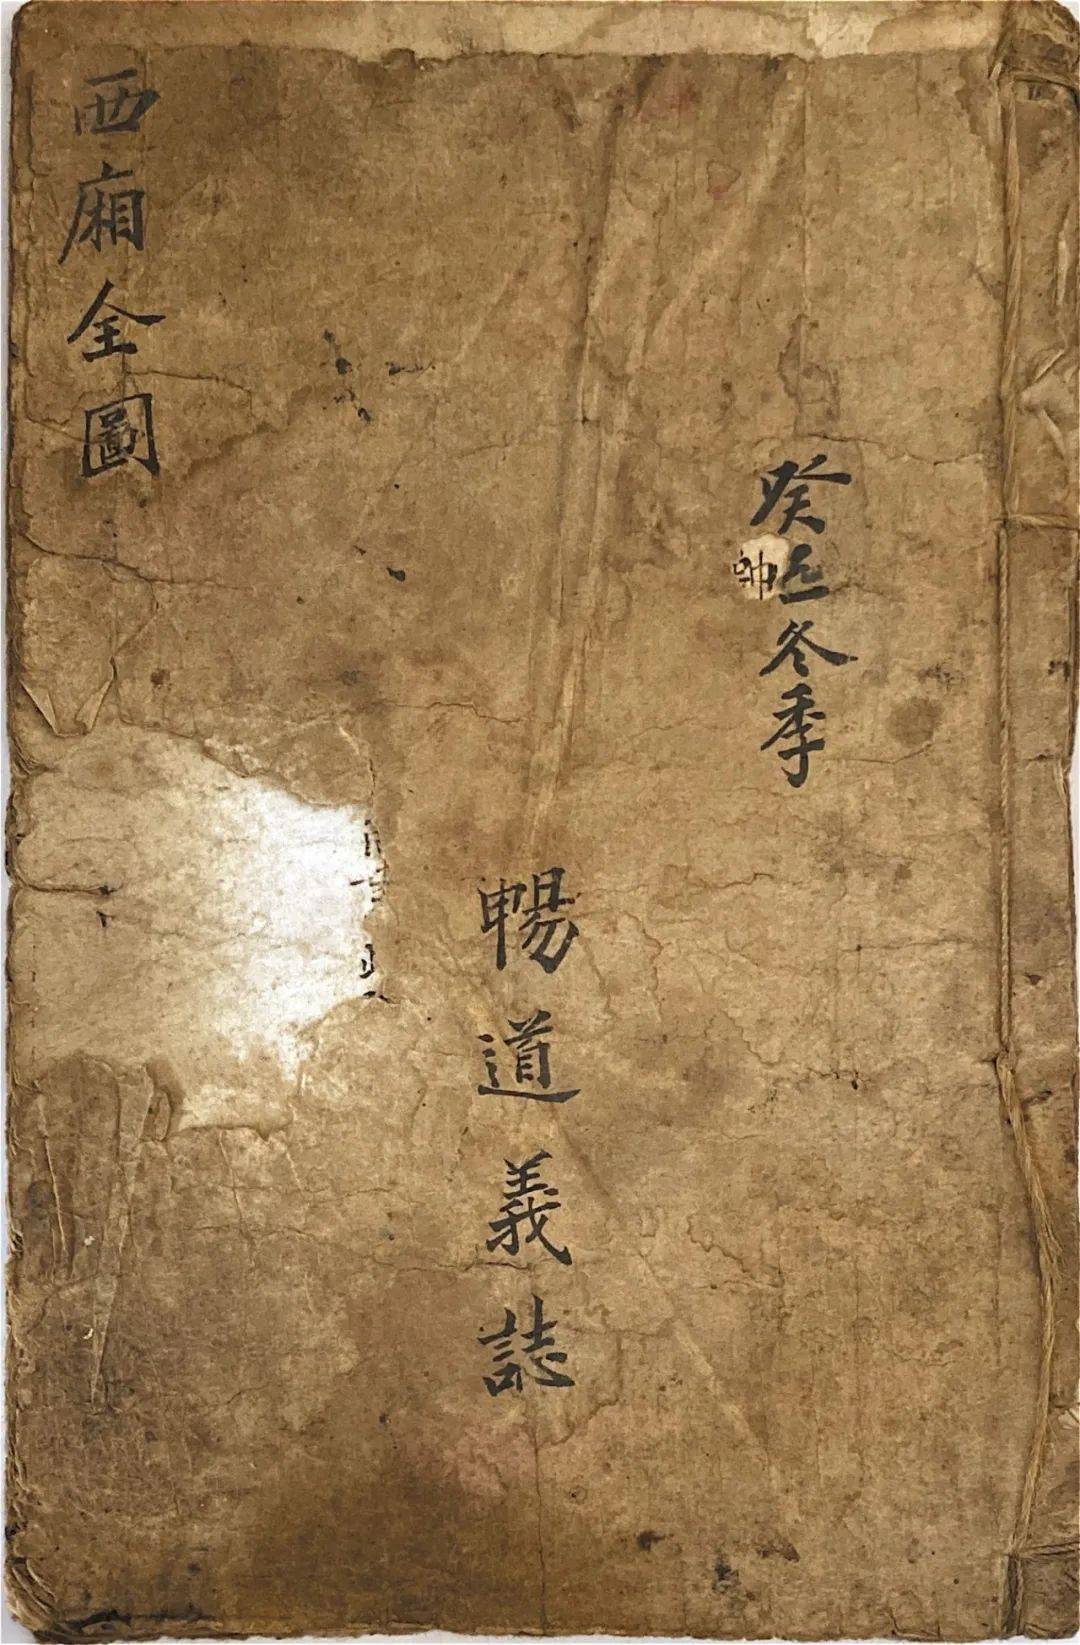 癸丑冬季
暢道義誌
西廂全圖